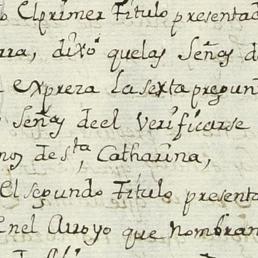 Elprimer Titulo presentad
rra, dixo quelas Señas d
expreza la sexta pregun
Señas deel Verificarse
de sta, Catharina,
El segundo Titulo presenta
Enel Arroyo que nombran